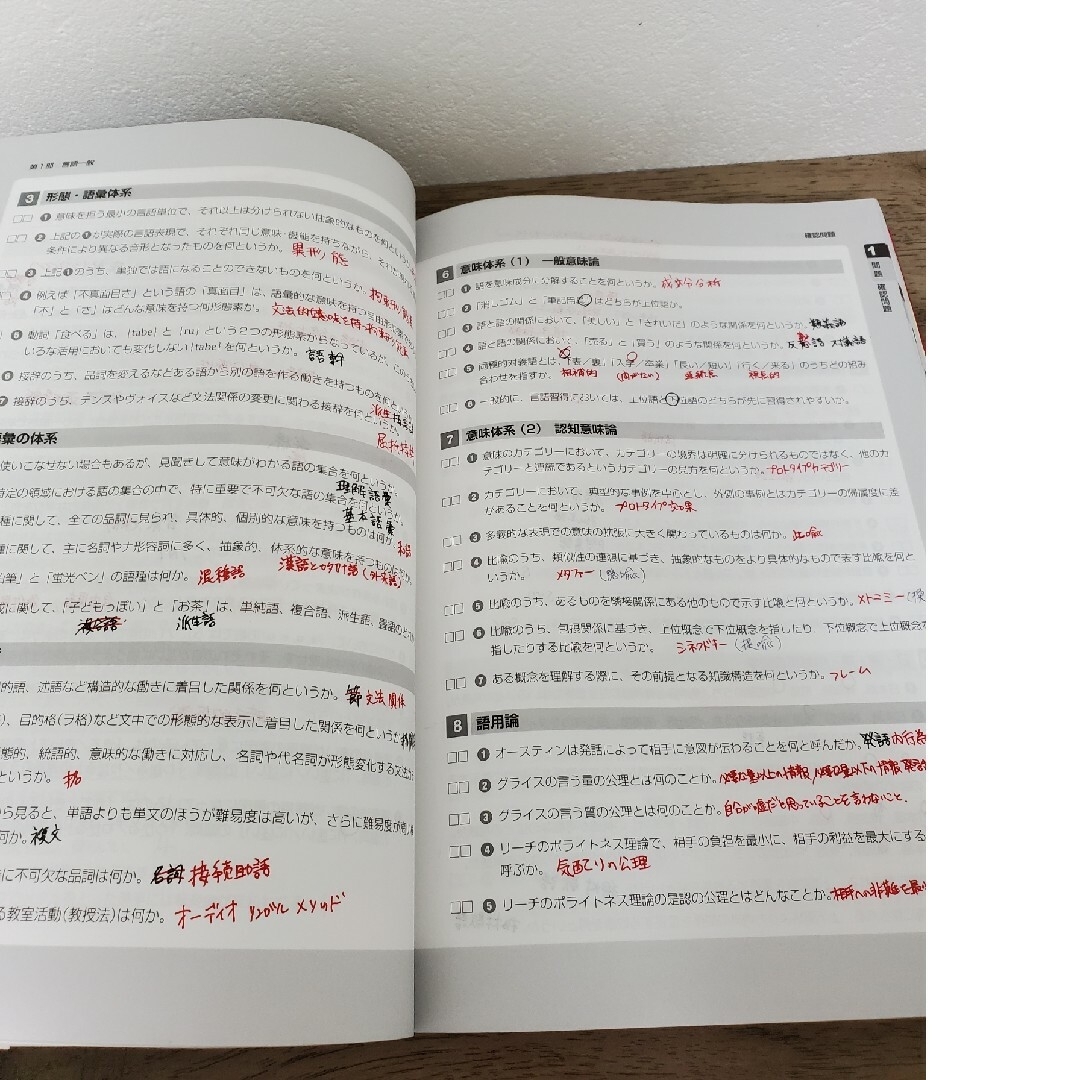 第1部 言語一般
3 形態・語彙体系
❶ 意味を担う最小の言語単位で、それ以上は分けられない抽象的なものを何という
❷ 上記の❶が実際の言語表現で、それぞれ同じ意味・機能を持ちながら、それ
条件により異なる音形となったものを何というか。異形態
❸ 上記❶のうち、単独では語になることのできないものを何というか。拘束
❹ 例えば「不真面目さ」という語の「真面目」は、語彙的な意味を持つ
「不」と「さ」はどんな意味を持つ何形態素か。文法的意味を持つ拘束
❺ 動詞「食べる」は、[tabe]と[ru]という2つの形態素からなっていると
いろな活用においても変化しない[tabe]を何というか。語幹
❻ 接辞のうち、品詞を変えるなどある語から別の語を作る働きを持つものを何という
❼ 接辞のうち、テンスやヴォイスなど文法関係の変更に関わる接辞を何という
派生接辞
屈折接辞
語彙の体系
使いこなせない場合もあるが、見聞きして意味がわかる語の集合を何というか。
理解語彙
特定の領域における語の集合の中で、特に重要で不可欠な語の集合を何というか。
基本語彙
種に関して、全ての品詞に見られ、具体的、個別的な意味を持つものは何か。和語
種に関して、主に名詞やナ形容詞に多く、抽象的、体系的な意味を持つものは何か。
鉛筆」と「蛍光ペン」の語種は何か。混種語 漢語とカタカナ語(外来語)
成に関して、「子どもっぽい」と「お茶」は、単純語、複合語、派生語、畳語のど
複合語 派生語
目的語、述語など構造的な働きに着目した関係を何というか。節 文法関係
、目的格(ヲ格)など文中での形態的な表示に着目した関係を何というか
態的、統語的、意味的な働きに対応し、名詞や代名詞が形態変化する文法
というか。格
から見ると、単語よりも単文のほうが難易度は高いが、さらに難易度が
何か。複文
に不可欠な品詞は何か。名詞 接続助詞
る教室活動(教授法)は何か。オーディオリンガルメソッド
確認問題
1
問題 確認問題
6 意味体系(1) 一般意味論
❶ 語を意味成分に分解することを何というか。成分分析
❷ 「消しゴム」と「筆記用具」はどちらが上位語か。
❸ 語と語の関係において、「美しい」と「きれいだ」のような関係を何というか。類義語
❹ 語と語の関係において、「売る」と「買う」のような関係を何というか。反意語 対義語
❺ 両極的対義語とは「表/裏」「入学/卒業」「長い/短い」「行く/来る」のうちどの組み
合わせを指すか。
❻ 一般的に、言語習得においては、上位語と下位語のどちらが先に習得されやすいか。
7 意味体系(2) 認知意味論
❶ 意味のカテゴリーにおいて、カテゴリーの境界は明確に分けられるものではなく、他のカ
テゴリーと連続であるというカテゴリーの見方を何というか。プロトタイプカテゴリー
❷ カテゴリーにおいて、典型的な事例を中心とし、外側の事例とはカテゴリーの帰属度に差
があることを何というか。プロトタイプ効果
❸ 多義的な表現での意味の拡張に大きく関わっているものは何か。比喩
❹ 比喩のうち、類似性の連想に基づき、抽象的なものをより具体的なもので表す比喩を何と
いうか。メタファー(隠喩)
❺ 比喩のうち、あるものを隣接関係にある他のもので示す比喩と何というか。メトニミー(換
❻ 比喩のうち、包摂関係に基づき、上位概念で下位概念を指したり、下位概念で上位概念を
指したりする比喩を何というか。シネクドキー(提喩)
❼ ある概念を理解する際に、その前提となる知識構造を何というか。フレーム
8 語用論
❶ オースティンは発話によって相手に意図が伝わることを何と呼んだか。発語内行為
❷ グライスの言う量の公理とは何のことか。必要な量以上の情報 必要な量以下の情報
❸ グライスの言う質の公理とは何のことか。自分が嘘だと思っていることを言わないこと。
❹ リーチのポライトネス理論で、相手の負担を最小に、相手の利益を最大にする
呼ぶか。気配りの公理
❺ リーチのポライトネス理論の是認の公理とはどんなことか。相手への非難を最